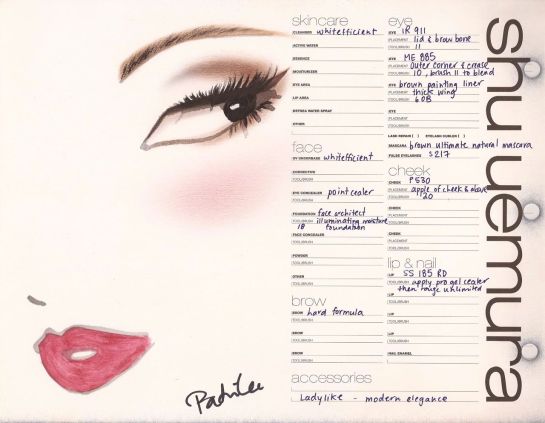 skincare
CLEANSER whitefficient
ACTIVE WATER
ESSENCE
MOISTURIZER
EYE AREA
LIP AREA
DEPSEA WATER SPRAY
OTHER
face
UV UNDERBASE whitefficient
CORRECTOR
TOOL/BRUSH
EYE CONCEALER pointcealer
TOOL/BRUSH
FOUNDATION face architect
TOOL/BRUSH illuminating moisture
18 foundation
FACE CONCEALER
TOOL/BRUSH
POWDER
TOOL/BRUSH
OTHER
TOOL/BRUSH
brow
BROW hard formula
TOOL/BRUSH
BROW
TOOL/BRUSH
BROW
TOOL/BRUSH
eye
EYE IR 911
PLACEMENT lid & brow bone
TOOL/BRUSH 11
EYE ME 885
PLACEMENT outer corner & crease
TOOL/BRUSH 10, brush 11 to blend
EYE brown painting liner
PLACEMENT thick wing
TOOL/BRUSH 60B
EYE
PLACEMENT
TOOL/BRUSH
LASH REPAIR ( ) EYELASH CURLER ( )
MASCARA brown ultimate natural mascara
FALSE EYELASHES S217
cheek
CHEEK P530
PLACEMENT apple of cheek & above
TOOL/BRUSH 20
CHEEK
PLACEMENT
TOOL/BRUSH
CHEEK
PLACEMENT
TOOL/BRUSH
lip & nail
LIP SS 185 RD
TOOL/BRUSH apply pro gel cealer
then rouge unlimited
LIP
TOOL/BRUSH
LIP
TOOL/BRUSH
LIP
TOOL/BRUSH
NAIL ENAMEL
accessories
Ladylike - modern elegance
shu uemura